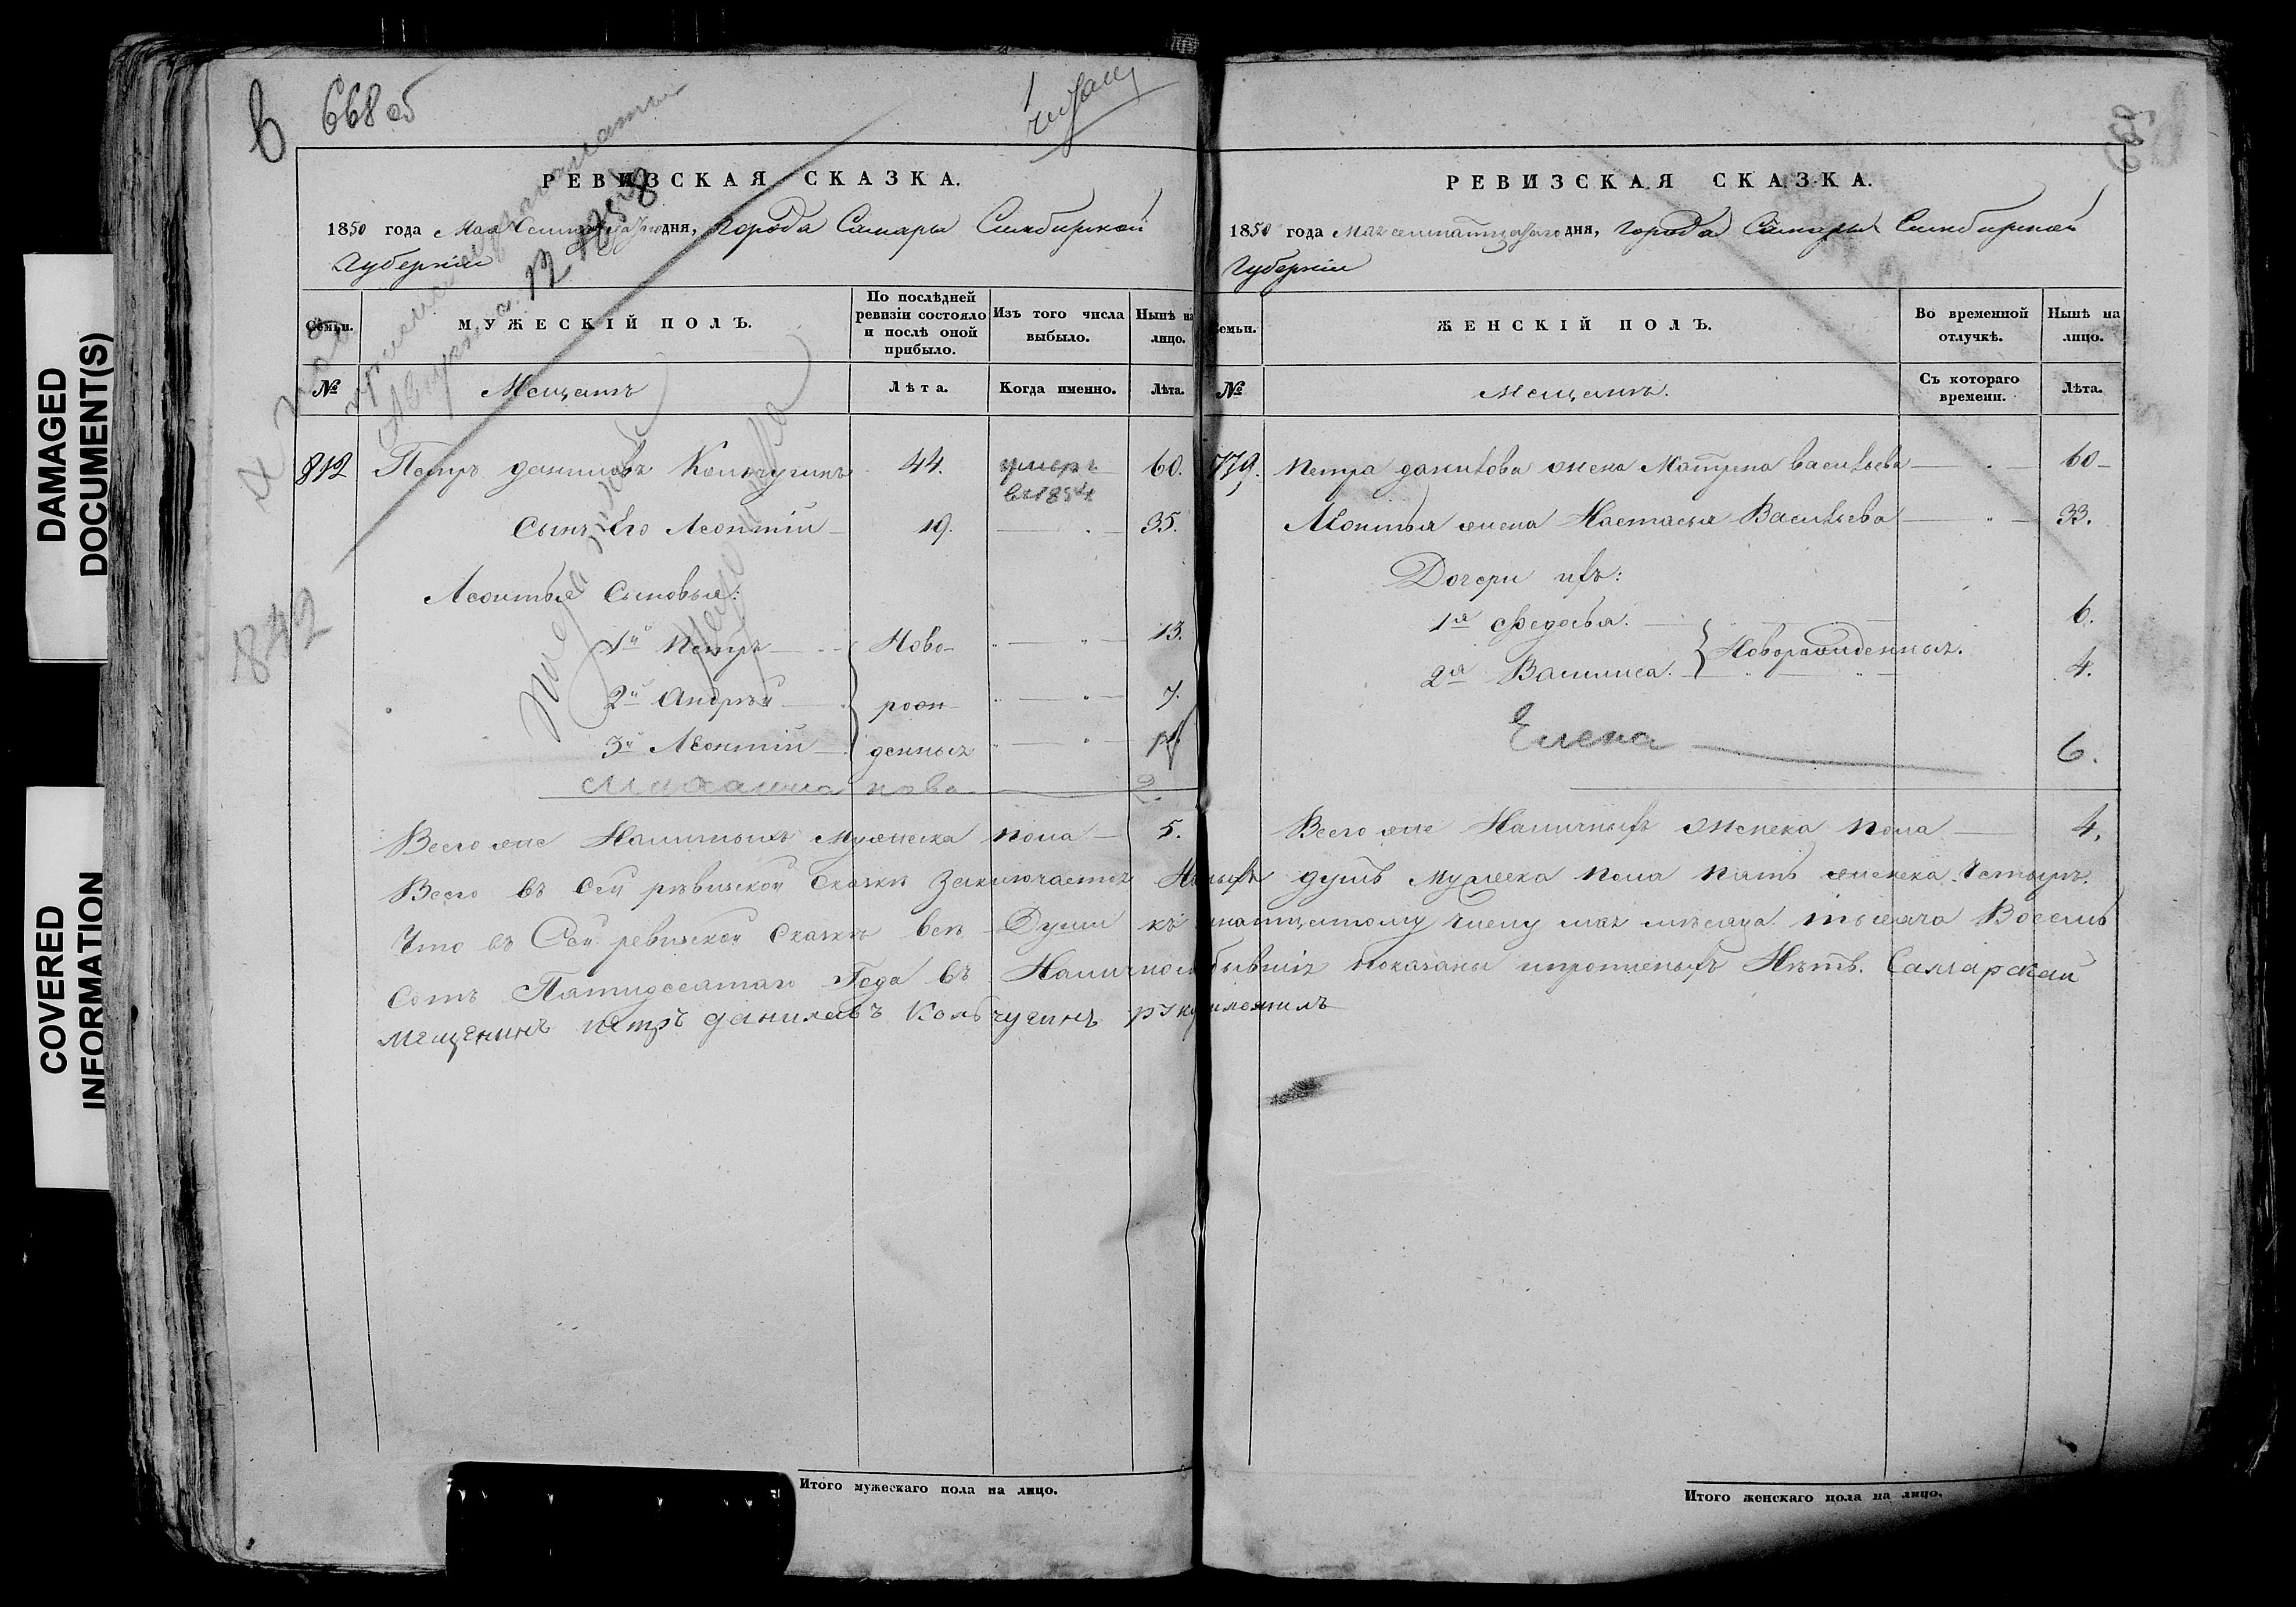 DAMAGED
DOCUMENT(S)
COVERED
INFORMATION
668 об
РЕВИЗСКАЯ СКАЗКА.
1850 года Мая дня, Города Самары Симбирской
Губернiи
Семьи.
МУЖЕСКIЙ ПОЛЪ.
По послѣдней
ревизiи состояло
и послѣ оной
прибыло.
Изъ того числа
выбыло.
Нынѣ на
лицо.
№
Мещанъ
Лѣта.
Когда именно.
Лѣта.
812 Петръ даниловъ Кольчугинъ 44. умеръ в 1854 60.
Сынъ Его Леонтiй 19. 35.
Леонтья Сыновья:
1й Петръ Ново- 13.
2й Андрѣй рож 7.
3й Леонтiй денных
ново 2.
842
Всего же Наличныхъ Мужеска пола 5.
РЕВИЗСКАЯ СКАЗКА.
1850 года Мая дня, Города Самары Симбирской
Губернiи
Семьи.
ЖЕНСКIЙ ПОЛЪ.
Во временной
отлучкѣ.
Нынѣ на
лицо.
№
Мещанъ.
Съ котораго
времени.
Лѣта.
779. Петра данилова жена Матрена васильева 60
Леонтья жена Настасья Васильева 33.
Дочери ихъ:
1я Федосья. 6.
Новорожденных.
2я Василиса. 4.
Елена 6.
Всего же Наличныхъ Женска пола 4.
Всего въ Сей ревизской Сказкѣ Заключается душъ Мужеска пола пять женска Четыре.
Что въ Сей ревизской Сказкѣ всѣ Души къ числу мая мѣсяца тысяча Восемь
Сотъ Пятидесятаго Года въ показаны Нѣтъ. Самарской
мещенинъ петръ данилавъ Кольчугинъ
Итого мужескаго пола на лицо.
Итого женскаго пола на лицо.